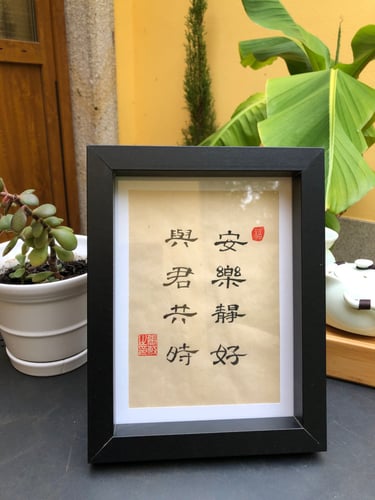 安樂静好
與君共時